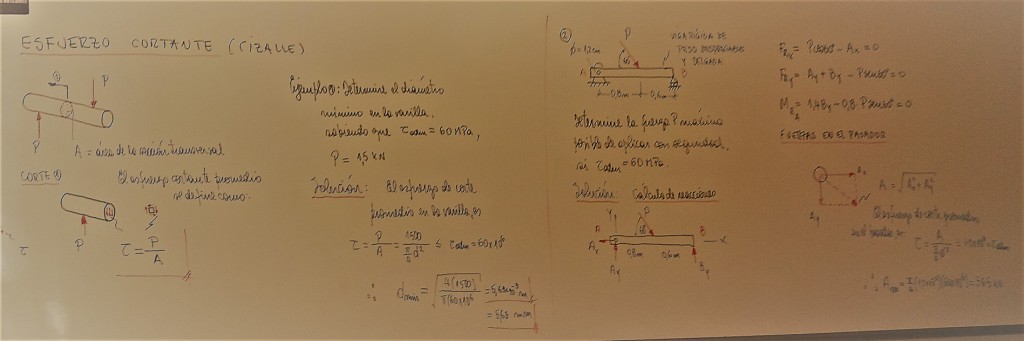 ESFUERZO CORTANTE (CIZALLE)
①
P
P
A = área de la sección transversal
CORTE ①
El esfuerzo cortante promedio
se define como:
P
τ
τ = P/A
Ejemplo①: Determine el diámetro
mínimo en la varilla,
sabiendo que τadm = 60 MPa,
P = 1,5 kN
Solución: El esfuerzo de corte
promedio en la varilla, es
τ = P/A = 1500/(π/4 d²) ≤ τadm = 60x10⁶
∴ dmin = √(4(1500)/π(60x10⁶)) = 5,64x10⁻³ m
= 5,64 mm
②
φ=12mm
P
60°
VIGA RÍGIDA DE
PESO DESPRECIABLE
Y DELGADA
A
B
0,8m
0,6m
Determine la fuerza P máxima
posible de aplicar con seguridad,
si τadm = 60 MPa.
Solución: Cálculo de reacciones
y
P
60°
A
B
x
Ax
Ay
0,8m
0,6m
By
FRx = Pcos60° - Ax = 0
FRy = Ay + By - Psen60° = 0
MRA = 1,4By - 0,8·Psen60° = 0
FUERZAS EN EL PASADOR
Ax
Ay
A = √(Ax² + Ay²)
El esfuerzo de corte promedio